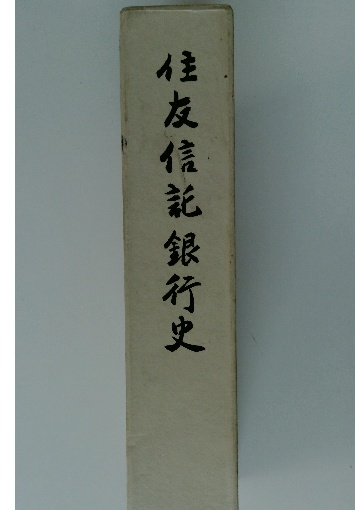 住友信託銀行史